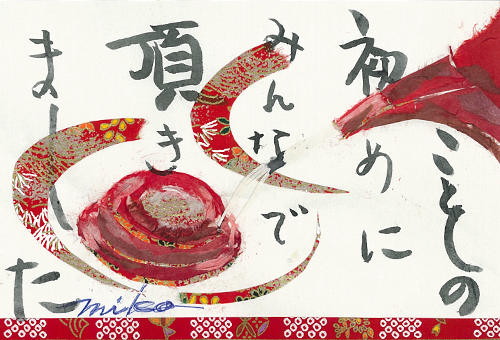 ことしの
初めに
みんなで
頂き
ました
miko